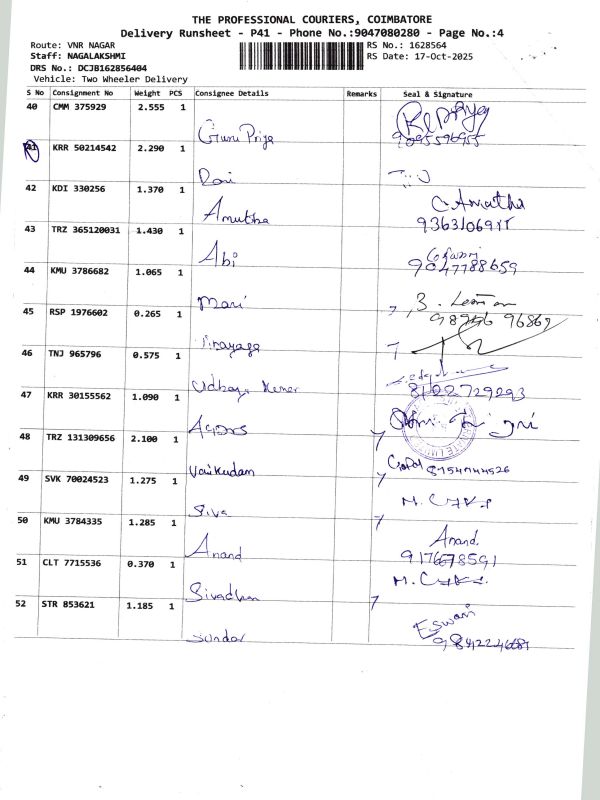 THE PROFESSIONAL COURIERS, COIMBATORE
Delivery Runsheet - P41 - Phone No.:9047080280 - Page No.:4
Route: VNR NAGAR RS No.: 1628564
Staff: NAGALAKSHMI RS Date: 17-Oct-2025
DRS No.: DCJB162856404
Vehicle: Two Wheeler Delivery
S No Consignment No Weight PCS Consignee Details Remarks Seal & Signature
40 CMM 375929 2.555 1
Guru Priya 9095596955
41 KRR 50214542 2.290 1
Rani
42 KDI 330256 1.370 1
Amutha
43 TRZ 365120031 1.430 1
Abi 9047788659
44 KMU 3786682 1.065 1
Mari
45 RSP 1976602 0.265 1
Vinayaga
46 TNJ 965796 0.575 1
Udhaya Kumar 8122729293
47 KRR 30155562 1.090 1
48 TRZ 131309656 2.100 1
49 SVK 70024523 1.275 1
Siva
50 KMU 3784335 1.285 1 Anand.
Anand
51 CLT 7715536 0.370 1
52 STR 853621 1.185 1 Eswari
Sundar